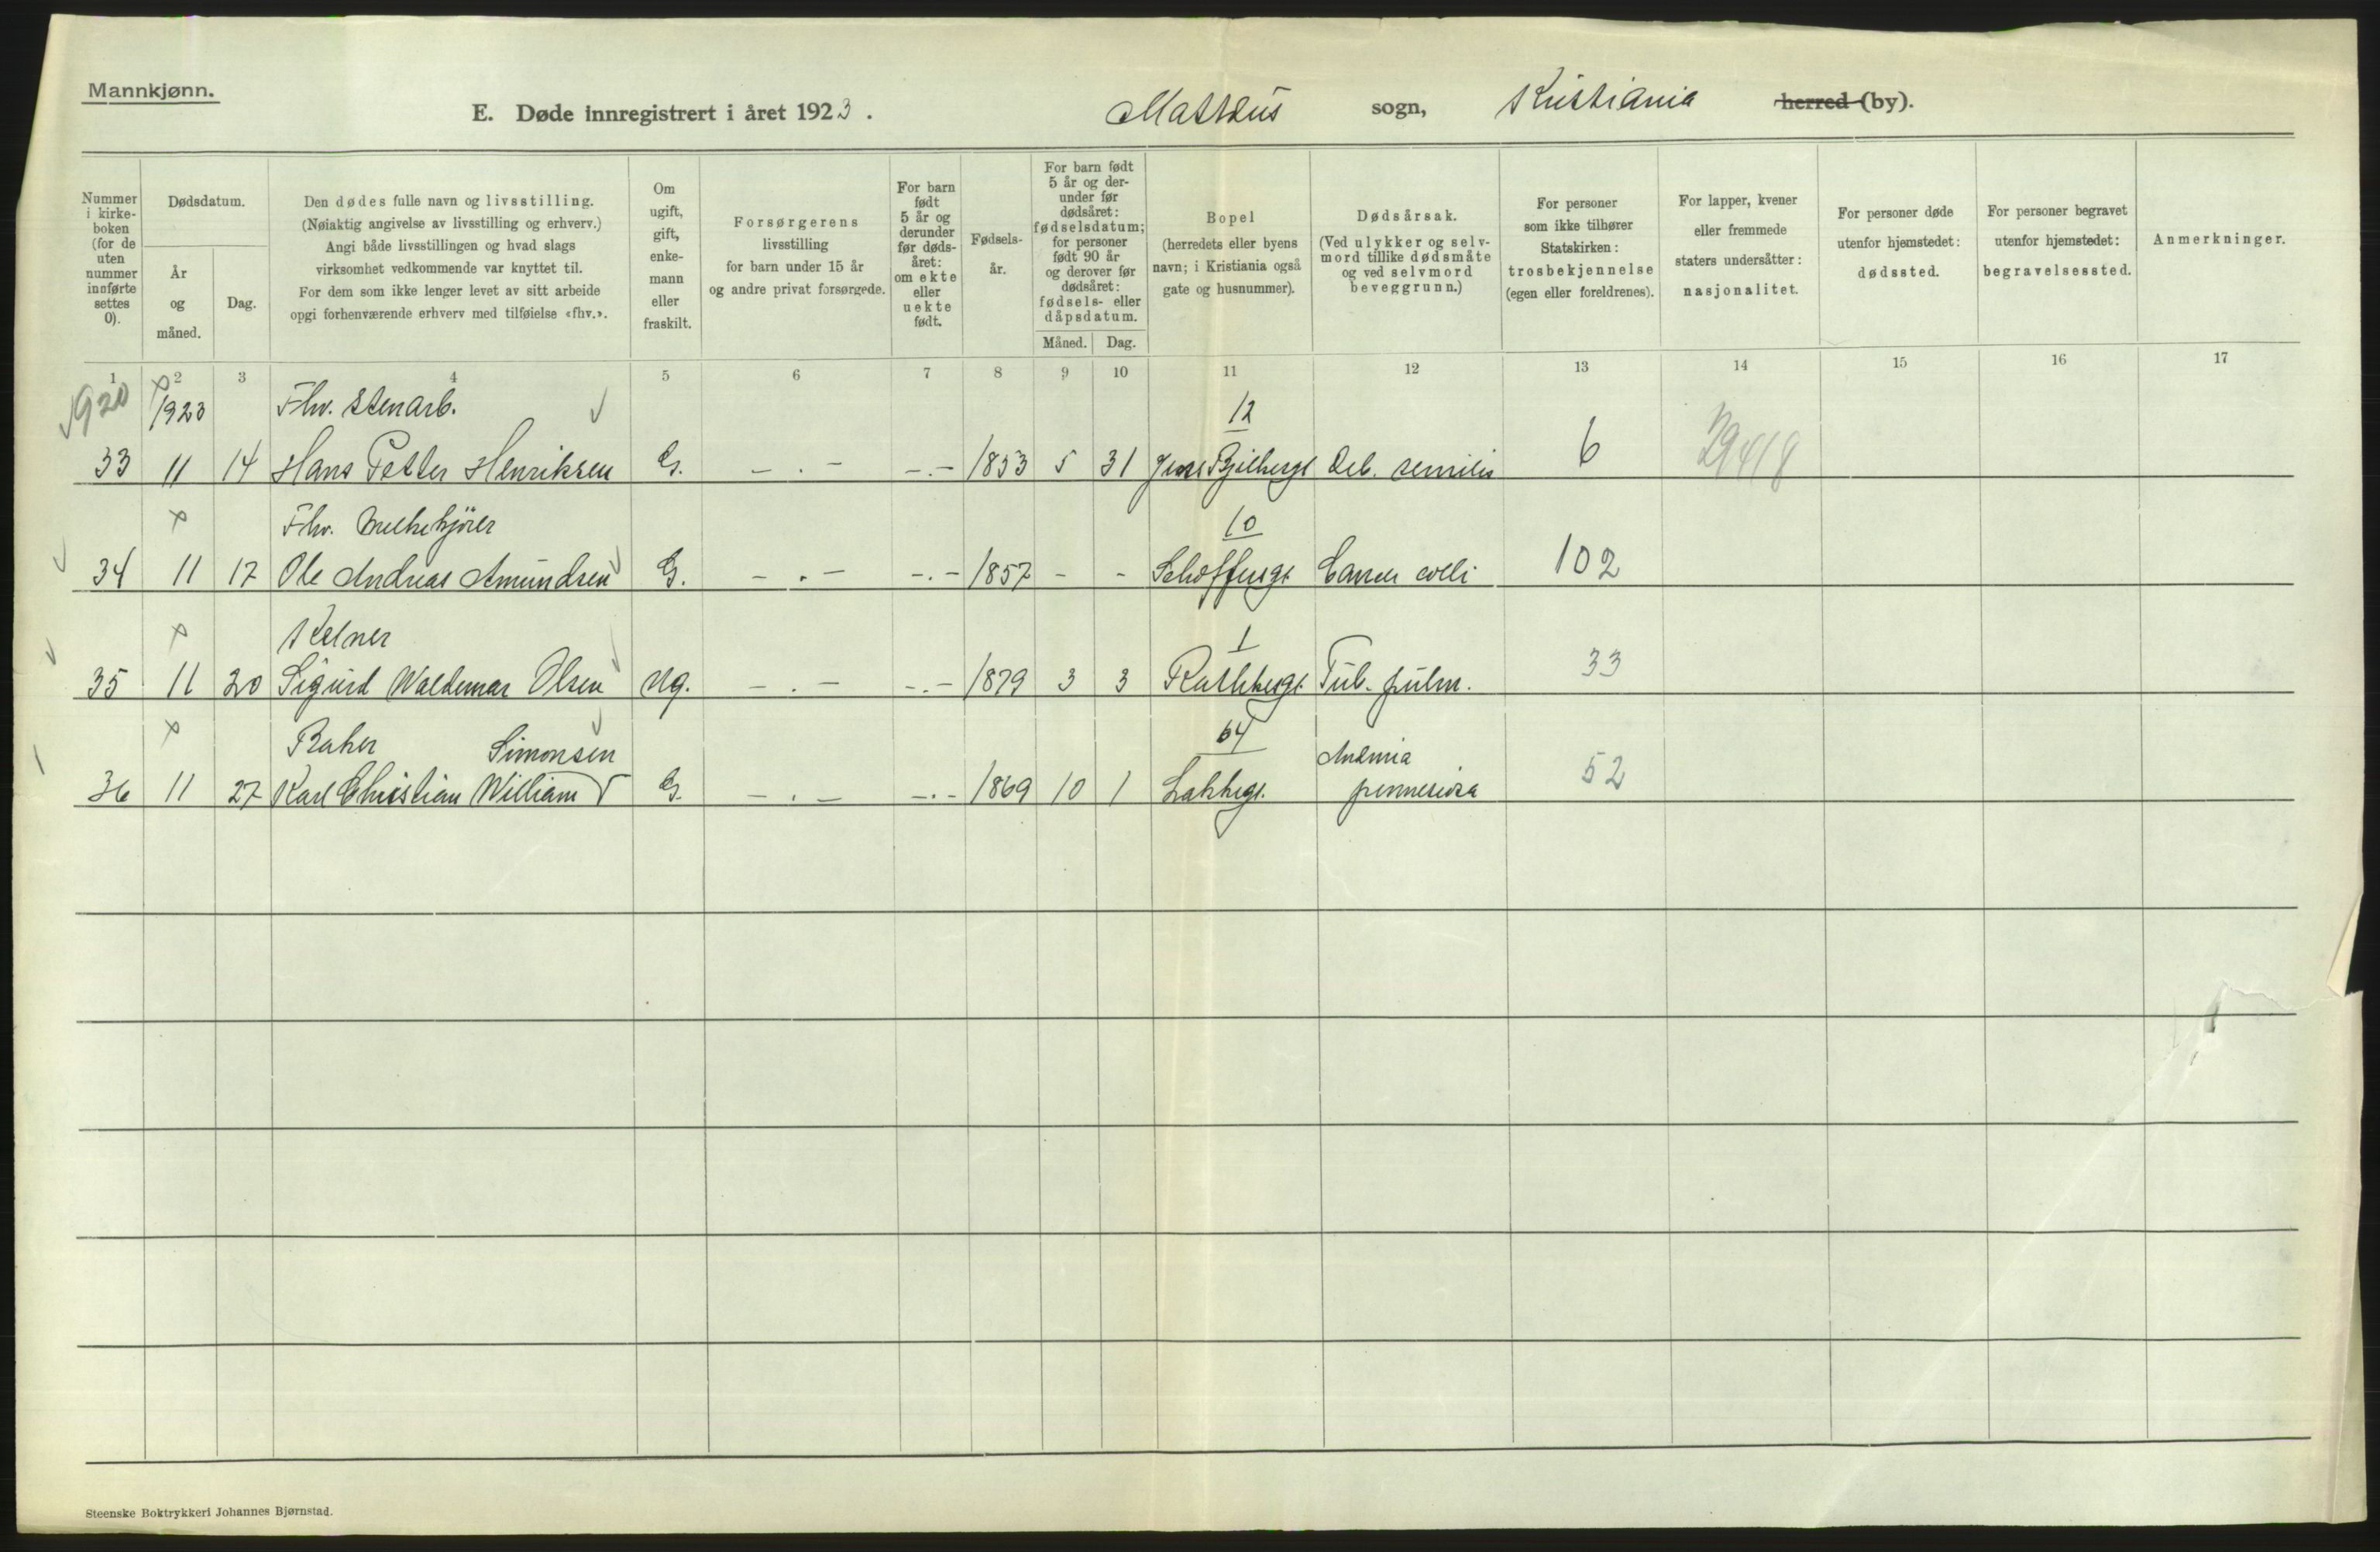 Mannkjønn.
E. Døde innregistrert i året 1923. Mattæus sogn, Kristiania herred (by).
Nummer i kirkeboken (for de uten nummer innførte settes 0).
Dødsdatum.
År og måned.
Dag.
Den dødes fulle navn og livsstilling.
(Nøiaktig angivelse av livsstilling og erhverv.)
Angi både livsstillingen og hvad slags
virksomhet vedkommende var knyttet til.
For dem som ikke lenger levet av sitt arbeide
opgi forhenværende erhverv med tilføielse «fhv.».
Om ugift, gift, enkemann eller fraskilt.
Forsørgerens
livsstilling
for barn under 15 år
og andre privat forsørgede.
For barn født 5 år og derunder før dødsåret: om ekte eller uekte født.
Fødselsår.
For barn født 5 år og derunder før dødsåret: fødselsdatum; for personer født 90 år og derover før dødsåret: fødsels- eller dåpsdatum.
Måned. Dag.
Bopel
(herredets eller byens
navn; i Kristiania også
gate og husnummer).
Dødsårsak.
(Ved ulykker og selvmord tillike dødsmåte og ved selvmord beveggrunn.)
For personer
som ikke tilhører
Statskirken:
trosbekjennelse
(egen eller foreldrenes).
For lapper, kvener
eller fremmede
staters undersåtter:
nasjonalitet.
For personer døde
utenfor hjemstedet:
dødssted.
For personer begravet
utenfor hjemstedet:
begravelsessted.
Anmerkninger.
1 2 3 4 5 6 7 8 9 10 11 12 13 14 15 16 17
1920 1923 Fhv. Stenarb. 12
33 11 14 Hans Petter Henriksen G. - . - -.- 1853 5 31 Jens Bjelkesgt Deb. senilis 6 29418
Fhv. Melkekjörer 10
34 11 17 Ole Andreas Amundsen G. - . - -.- 1857 - - Schoffensgt Cancer colli 102
Kelner 1
35 11 20 Sigurd Waldemar Olsen Ug. - . - -.- 1879 3 3 Rathkesgt. Tub. pulm. 33
Baker Simonsen 64 Anæmia
36 11 27 Karl Christian William G. - . - -.- 1869 10 1 Lakkegt. perniciosa 52
Steenske Boktrykkeri Johannes Bjørnstad.